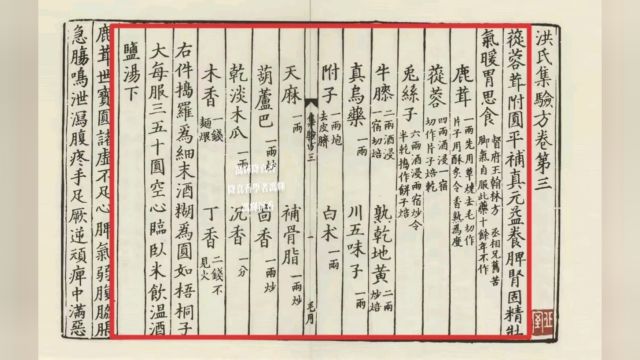 洪氏集驗方卷第三
蓯蓉茸附圓平補真元益養脾腎固精壯
氣暖胃思食 督府王翰林方 丞相兄舊苦
脚氣自服此藥十餘年不作
鹿茸 一兩先用草燎去毛切作
片子用酥炙令香熟爲度
蓯蓉 四兩酒浸一宿
切作片子焙乾
兎絲子 六兩酒浸兩宿炒令
半乾搗作餅子焙
牛膝 二兩酒浸一宿切焙 熟乾地黃 二兩炒焙
真烏藥 一兩 川五味子 一兩
附子 一兩炮去皮臍 白朮 一兩
三 一 毛月
天麻 一兩 補骨脂 一兩炒
葫蘆巴 一兩炒 茴香 一兩炒
乾淡木瓜 一兩 沉香 一分
木香 一錢麵煨 丁香 二錢不見火
右件搗羅爲細末酒糊爲圓如梧桐子
大每服三五十圓空心臨臥米飲溫酒
鹽湯下
鹿茸世寶圓諸虛不足心脾氣弱腹脇脹
急腸鳴泄瀉腹疼手足厥逆頑痺中滿惡